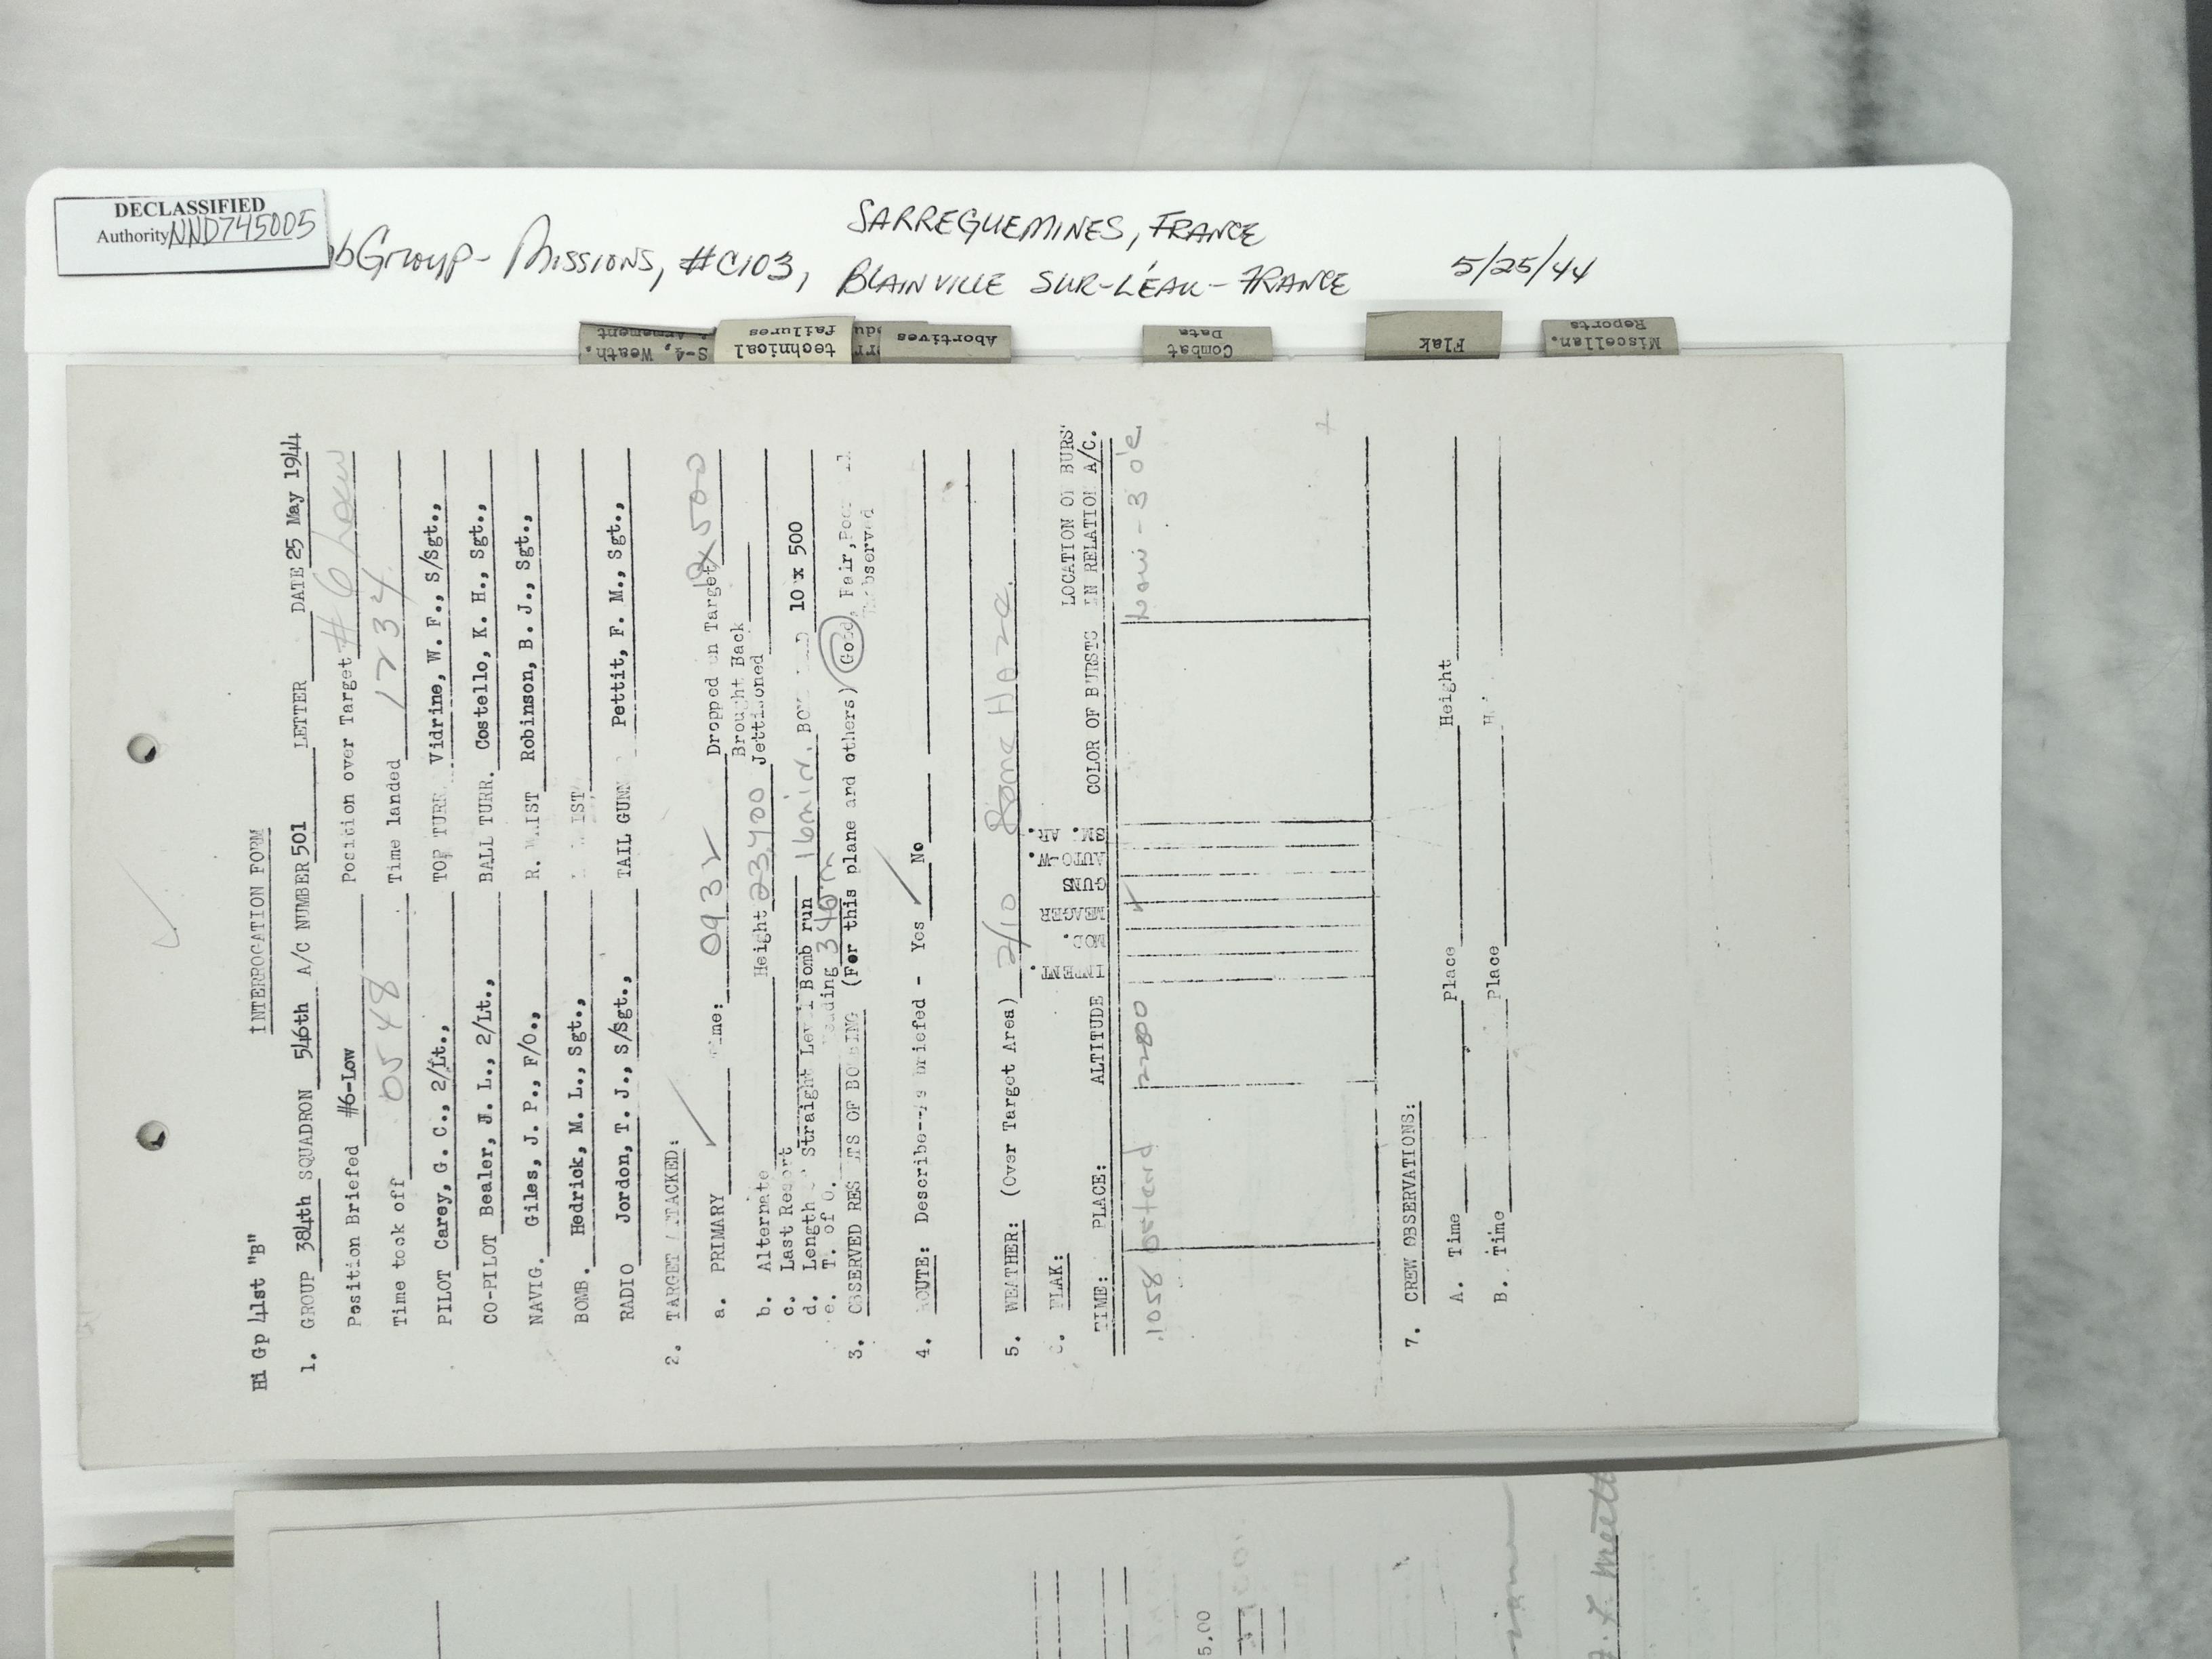 DECLASSIFIED
Authority NND745005
bGroup- Missions, #C103,
SARREGUEMINES, FRANCE
BLAINVILLE SUR-L'EAU-FRANCE
5/25/44
S-4, Weath.
Armament
technical
failures
Abortives
Combat
Data
Flak
Miscellan.
Reports
Hi Gp 41st "B"
INTERROGATION FORM
1. GROUP 384th SQUADRON 546th A/C NUMBER 501 LETTER DATE 25 May 1944
Position Briefed #6-Low Position over Target #6 Low
Time took off 0548 Time landed 1234
PILOT Carey, G. C., 2/Lt., TOP TURR. Vidrine, W. F., S/Sgt.,
CO-PILOT Bealer, J. L., 2/Lt., BALL TURR. Costello, K. H., Sgt.,
NAVIG. Giles, J. P., F/O., R. WAIST Robinson, B. J., Sgt.,
BOMB. Hedrick, M. L., Sgt.,
RADIO Jordon, T. J., S/Sgt., TAIL GUNN Pettit, F. M., Sgt.,
2. TARGET ATTACKED:
a. PRIMARY Time: 0932 Dropped on Target 500
Brought Back
b. Alternate Height 23,400 Jettisoned
c. Last Resort
d. Length Straight Level Bomb run 16min. 10 x 500
e. T. of O. Heading
3. OBSERVED RESULTS OF BOMBING (For this plane and others) Good, Fair, Poor
Unobserved
4. ROUTE: Describe--As briefed - Yes No
5. WEATHER: (Over Target Area) 2/10 Some Haze.
FLAK:
TIME: PLACE: ALTITUDE INTENT. MOD. MEAGER GUNS AUTO-W. SM. AR. COLOR OF BURSTS LOCATION OF BURS
IN RELATION A/C.
1058 Ostend Low - 3 o'c
7. CREW OBSERVATIONS:
A. Time Place Height
B. Time Place
5.00